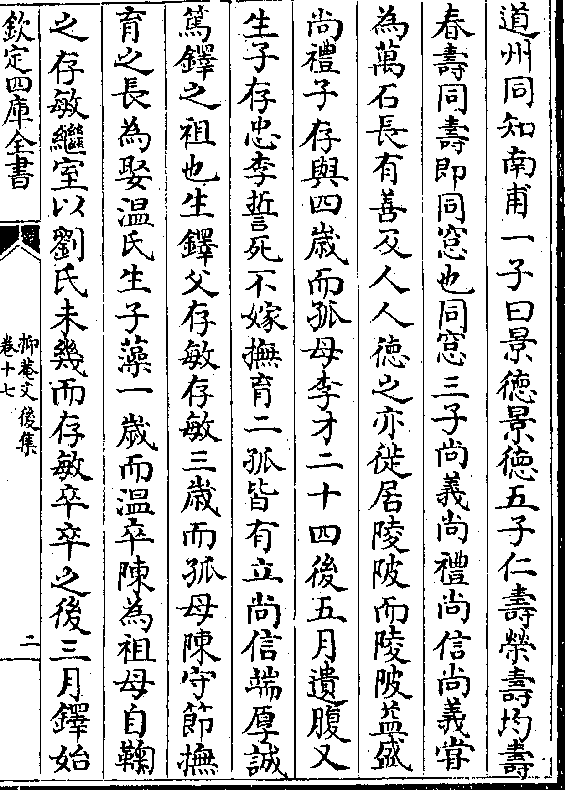 道州同知南甫一子曰景徳景徳五子仁壽榮壽均壽
春壽同壽即同窓也同窓三子尚義尚禮尚信尚義甞
為萬石長有善及人人徳之亦徙居陵陂而陵陂益盛
尚禮子存與四歳而孤母李才二十四後五月遺腹又
生子存忠李誓死不嫁撫育二孤皆有立尚信端厚誠
篤鐸之祖也生鐸父存敏存敏三歳而孤母陳守節撫
育之長為娶温氏生子藻一歳而温卒陳為祖母自鞠
之存敏繼室以劉氏未幾而存敏卒卒之後三月鐸始
欽定四庫全書
抑菴文後集
卷十七
二